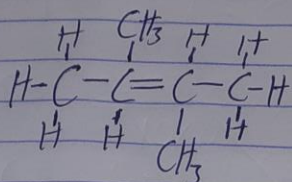 H CH3 H H
H-C-C=C-C-H
H H CH3 H